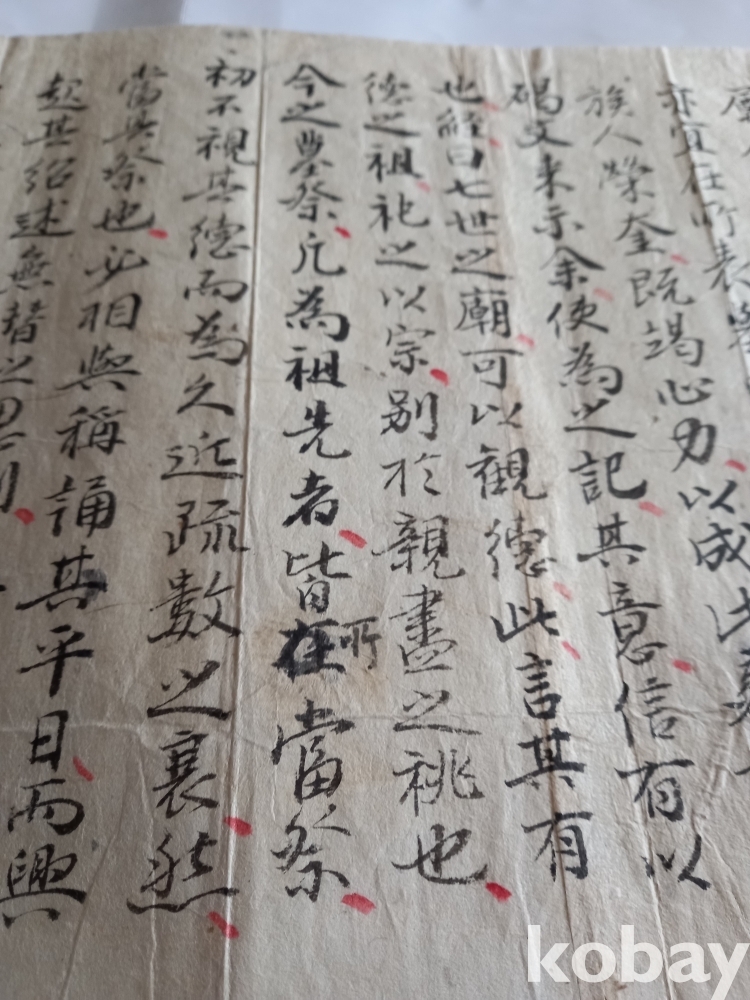 亦宜在所表
族人榮奎既竭心力以成此
碣文来示余使為之記其意信有以
也經曰七世之廟可以観德此言其有
德之祖祀之以宗別於親盡之祧也
今之墓祭凡為祖先者皆在所當祭
初不視其德而為久近疏數之衰然
當其祭也必相與稱誦其平日而興
起其紹述無替之思則
kobay